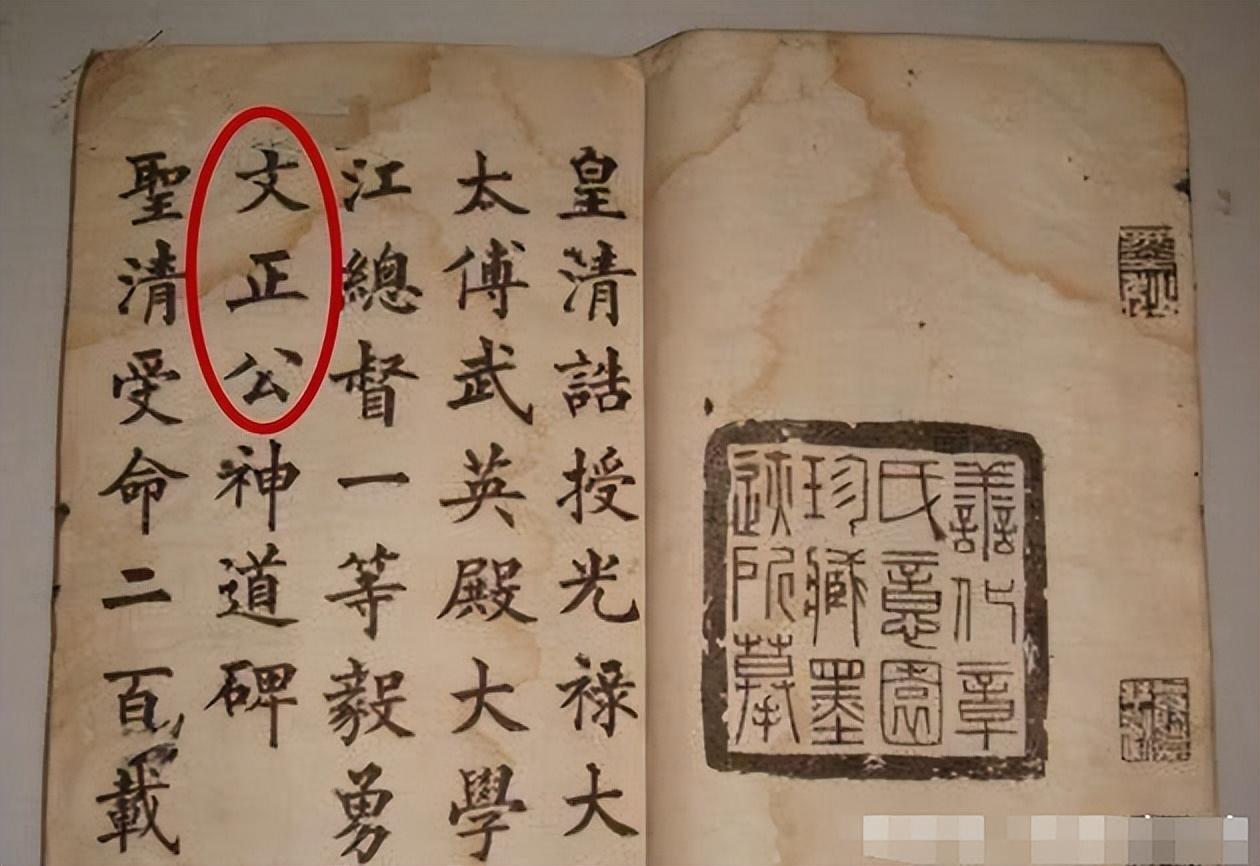 譱化章
氏意園
珍藏墨
迹所摹
皇清誥授光禄大
太傅武英殿大學
江總督一等毅勇
文正公神道碑
聖清受命二百載